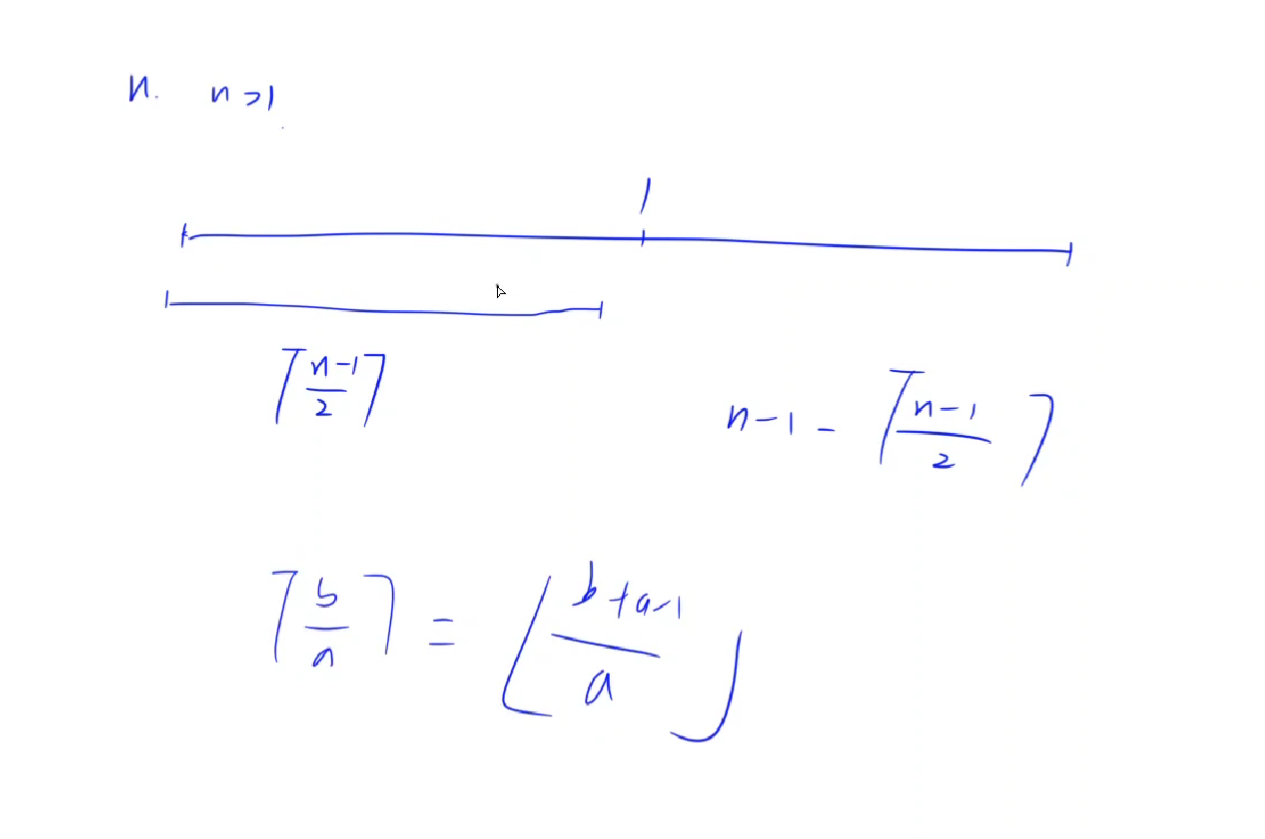 n. n>1
1
⌈(n-1)/2⌉ n-1-⌈(n-1)/2⌉
⌈b/a⌉ = ⌊(b+a-1)/a⌋